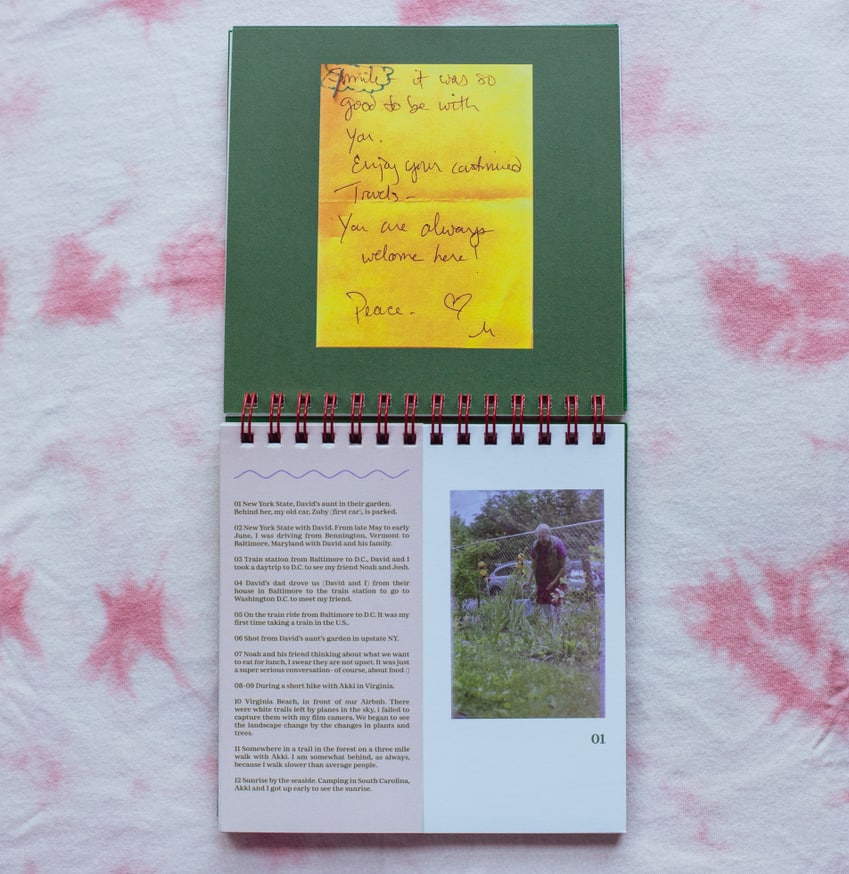 Smile - it was so
good to be with
You.
Enjoy your continued
Travels -
You are always
welcome here!
Peace. ♡
01 New York State, David's aunt in their garden.
Behind her, my old car, Zuby (first car), is parked.
02 New York State with David. From late May to early
June, I was driving from Bennington, Vermont to
Baltimore, Maryland with David and his family.
03 Train station from Baltimore to D.C., David and I
took a daytrip to D.C. to see my friend Noah and Josh.
04 David's dad drove us (David and I) from their
house in Baltimore to the train station to go to
Washington D.C. to meet my friend.
05 On the train ride from Baltimore to D.C. It was my
first time taking a train in the U.S..
06 Shot from David's aunt's garden in upstate NY.
07 Noah and his friend thinking about what we want
to eat for lunch, I swear they are not upset. It was just
a super serious conversation- of course, about food :)
08-09 During a short hike with Akki in Virginia.
10 Virginia Beach, in front of our Airbnb. There
were white trails left by planes in the sky, i failed to
capture them with my film camera. We began to see
the landscape change by the changes in plants and
trees.
11 Somewhere in a trail in the forest on a three mile
walk with Akki. I am somewhat behind, as always,
because I walk slower than average people.
12 Sunrise by the seaside. Camping in South Carolina,
Akki and I got up early to see the sunrise.
01